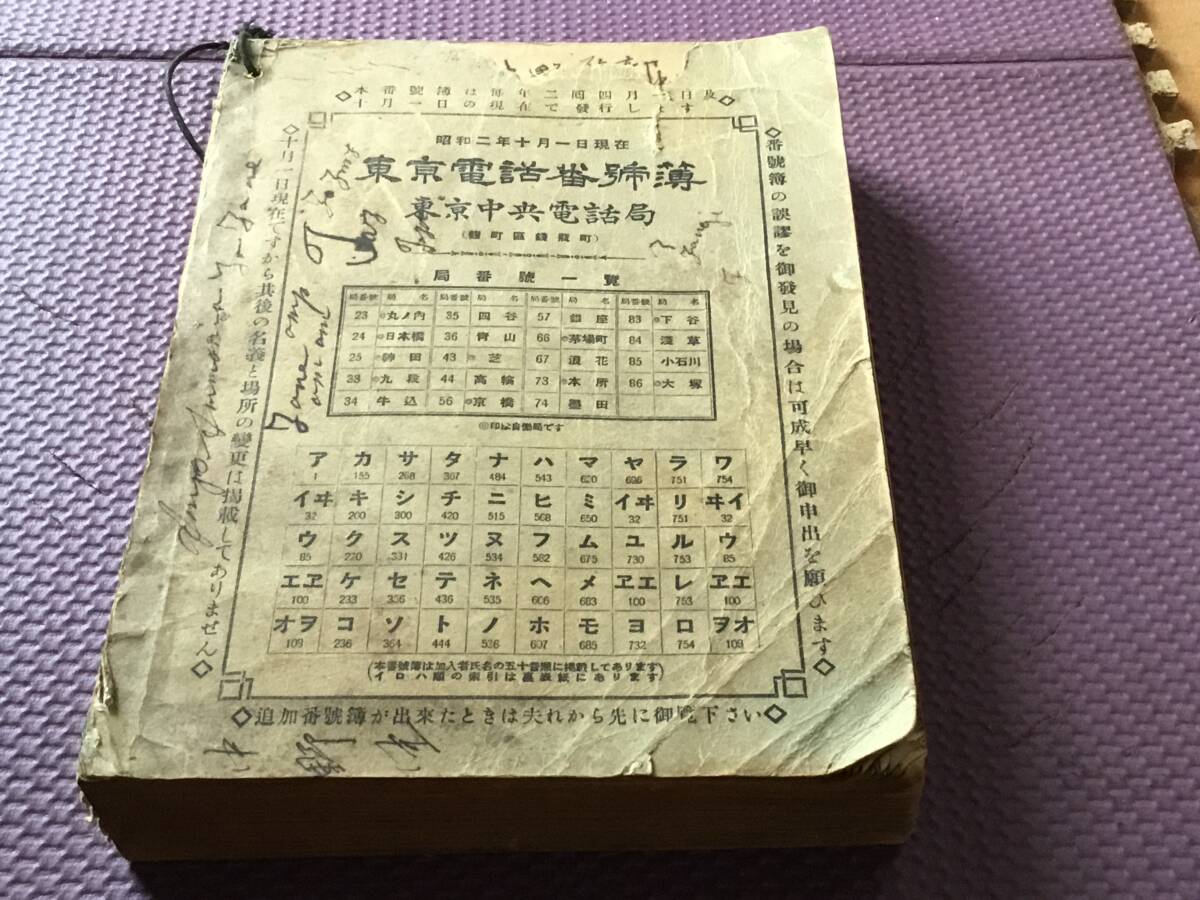 ◇本番號簿は毎年二囘四月一日及
十月一日の現在で發行します◇
昭和二年十月一日現在
東京電話番號簿
東京中央電話局
(麴町區錢瓶町)
◇番號簿の誤謬を御發見の場合は可成早く御申出を願ひます◇
◇十月一日現在ですから其後の名義と場所の變更は揭載してありません◇
局番號一覽
局番號 局名 局番號 局名 局番號 局名 局番號 局名
23 ◎丸ノ內 35 四谷 57 銀座 83 ◎下谷
24 ◎日本橋 36 靑山 66 ◎茅場町 84 淺草
25 ◎神田 43 ◎芝 67 浪花 85 小石川
33 ◎九段 44 高輪 73 ◎本所 86 ◎大塚
34 牛込 56 ◎京橋 74 墨田
◎印は自働局です
ア カ サ タ ナ ハ マ ヤ ラ ワ
1 155 268 367 484 543 620 696 751 754
イヰ キ シ チ ニ ヒ ミ イヰ リ ヰイ
32 200 300 420 515 568 650 32 751 32
ウ ク ス ツ ヌ フ ム ユ ル ウ
85 220 331 426 534 582 675 730 753 85
エヱ ケ セ テ ネ ヘ メ ヱエ レ ヱエ
100 233 336 436 535 606 683 100 753 100
オヲ コ ソ ト ノ ホ モ ヨ ロ ヲオ
109 236 364 444 536 607 685 732 754 109
(本番號簿は加入者氏名の五十音順に揭載してあります)
(イロハ順の索引は裏表紙にあります)
◇追加番號簿が出來たときは夫れから先に御覽下さい◇